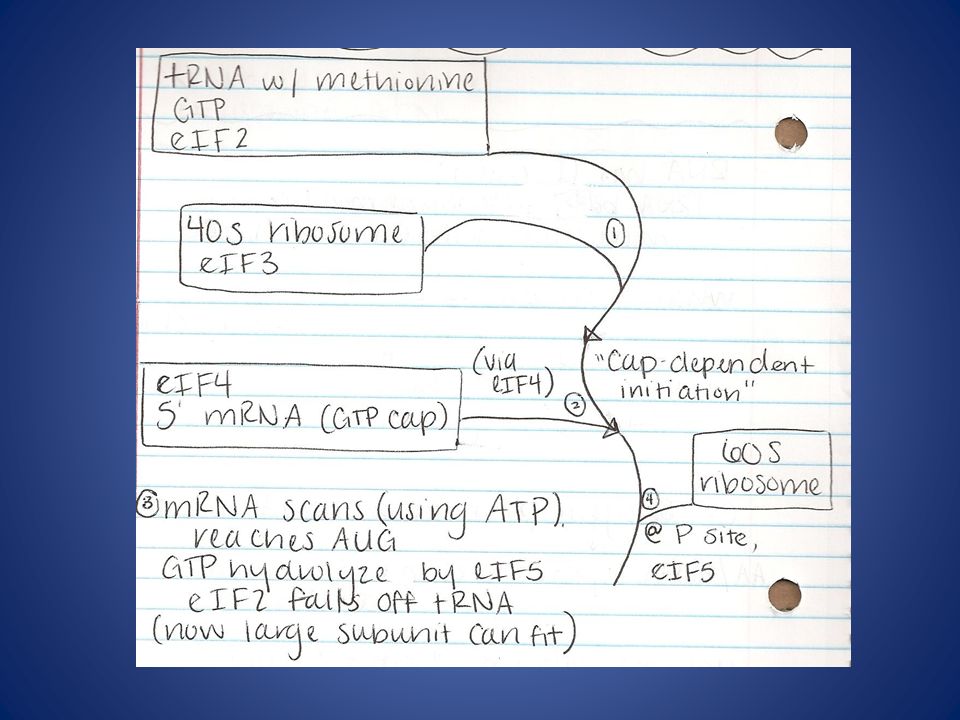 tRNA w/ methionine
GTP
eIF2
①
40S ribosome
eIF3
(via
eIF4)
"Cap-dependent
initiation"
eIF4
5' mRNA (GTP cap)
②
60S
ribosome
③ mRNA scans (using ATP).
reaches AUG
GTP hydrolyze by eIF5
eIF2 falls off tRNA
(now large subunit can fit)
④
@ P site,
eIF5